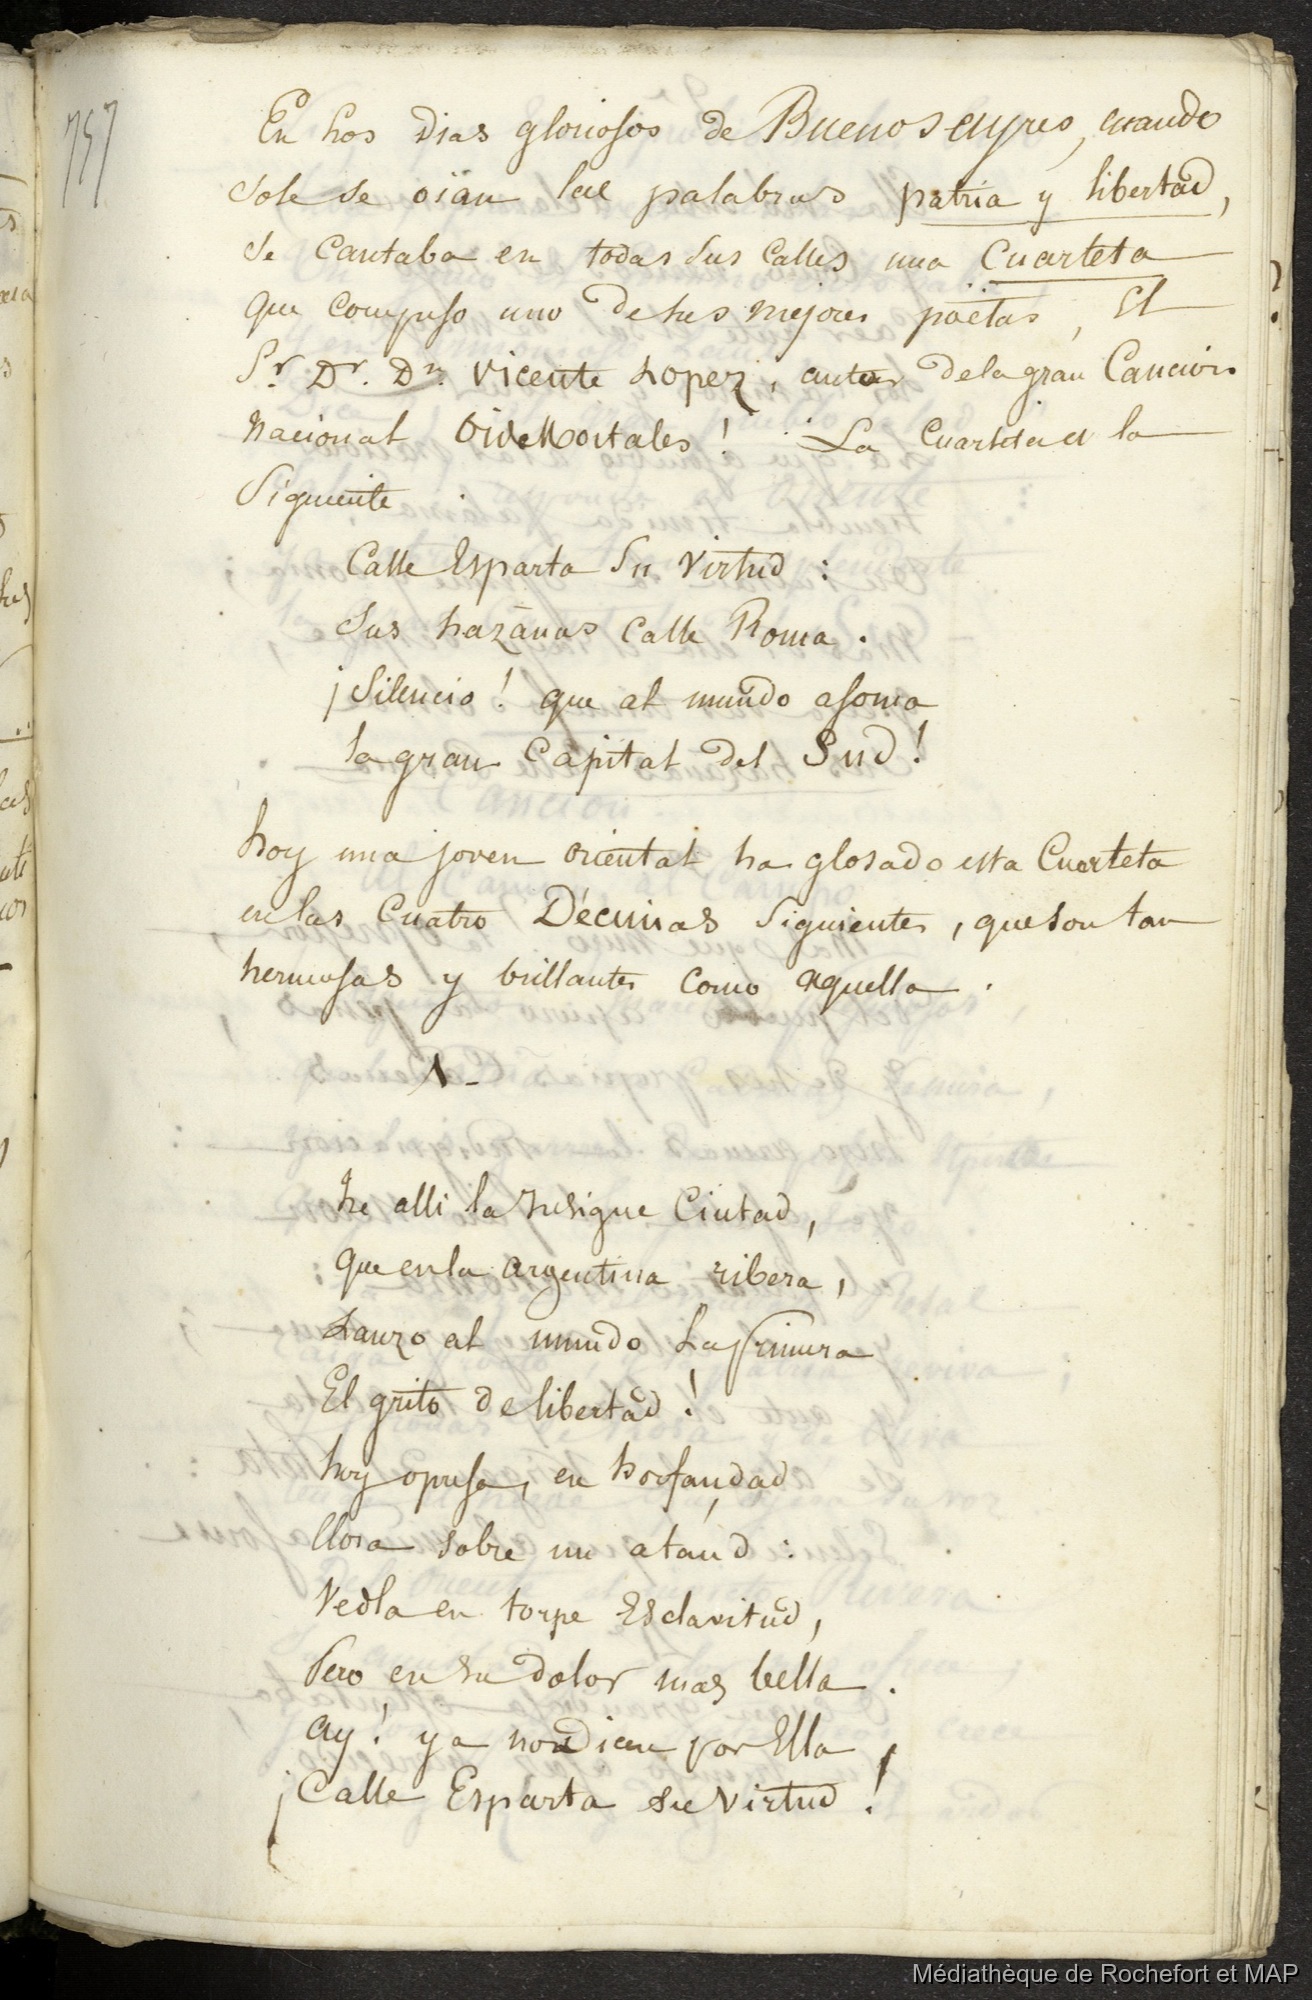 757
En los dias gloriosos de Buenos ayres, cuando
solo se oian las palabras patria y libertad,
se cantaba en todas sus calles una Cuarteta
que compuso uno de sus mejores poëtas, El
Sr. Dr. Dn. Vicente Lopez, autor de la gran Cancion
Nacional Oid Mortales! La Cuarteta es la
Siguiente
Calle Esparta su virtud:
sus hazañas calle Roma.
¡Silencio! que al mundo asoma
la gran Capital del Sud!
hoy una joven oriental ha glosado esta Cuarteta
en las Cuatro Décimas Siguientes, que son tan
hermosas y brillantes como aquella.
1-
he alli la Insigne Ciutad,
que en la argentina ribera,
Lanzo al mundo La Primera
El grito de libertad!
hoy opresa, en horfandad
llora sobre un ataúd:
Vedla en torpe Esclavitud,
Pero en su dolor mas bella.
ay! ya no dicen por Ella,
¡Calle Esparta su virtud!
Médiathèque de Rochefort et MAP